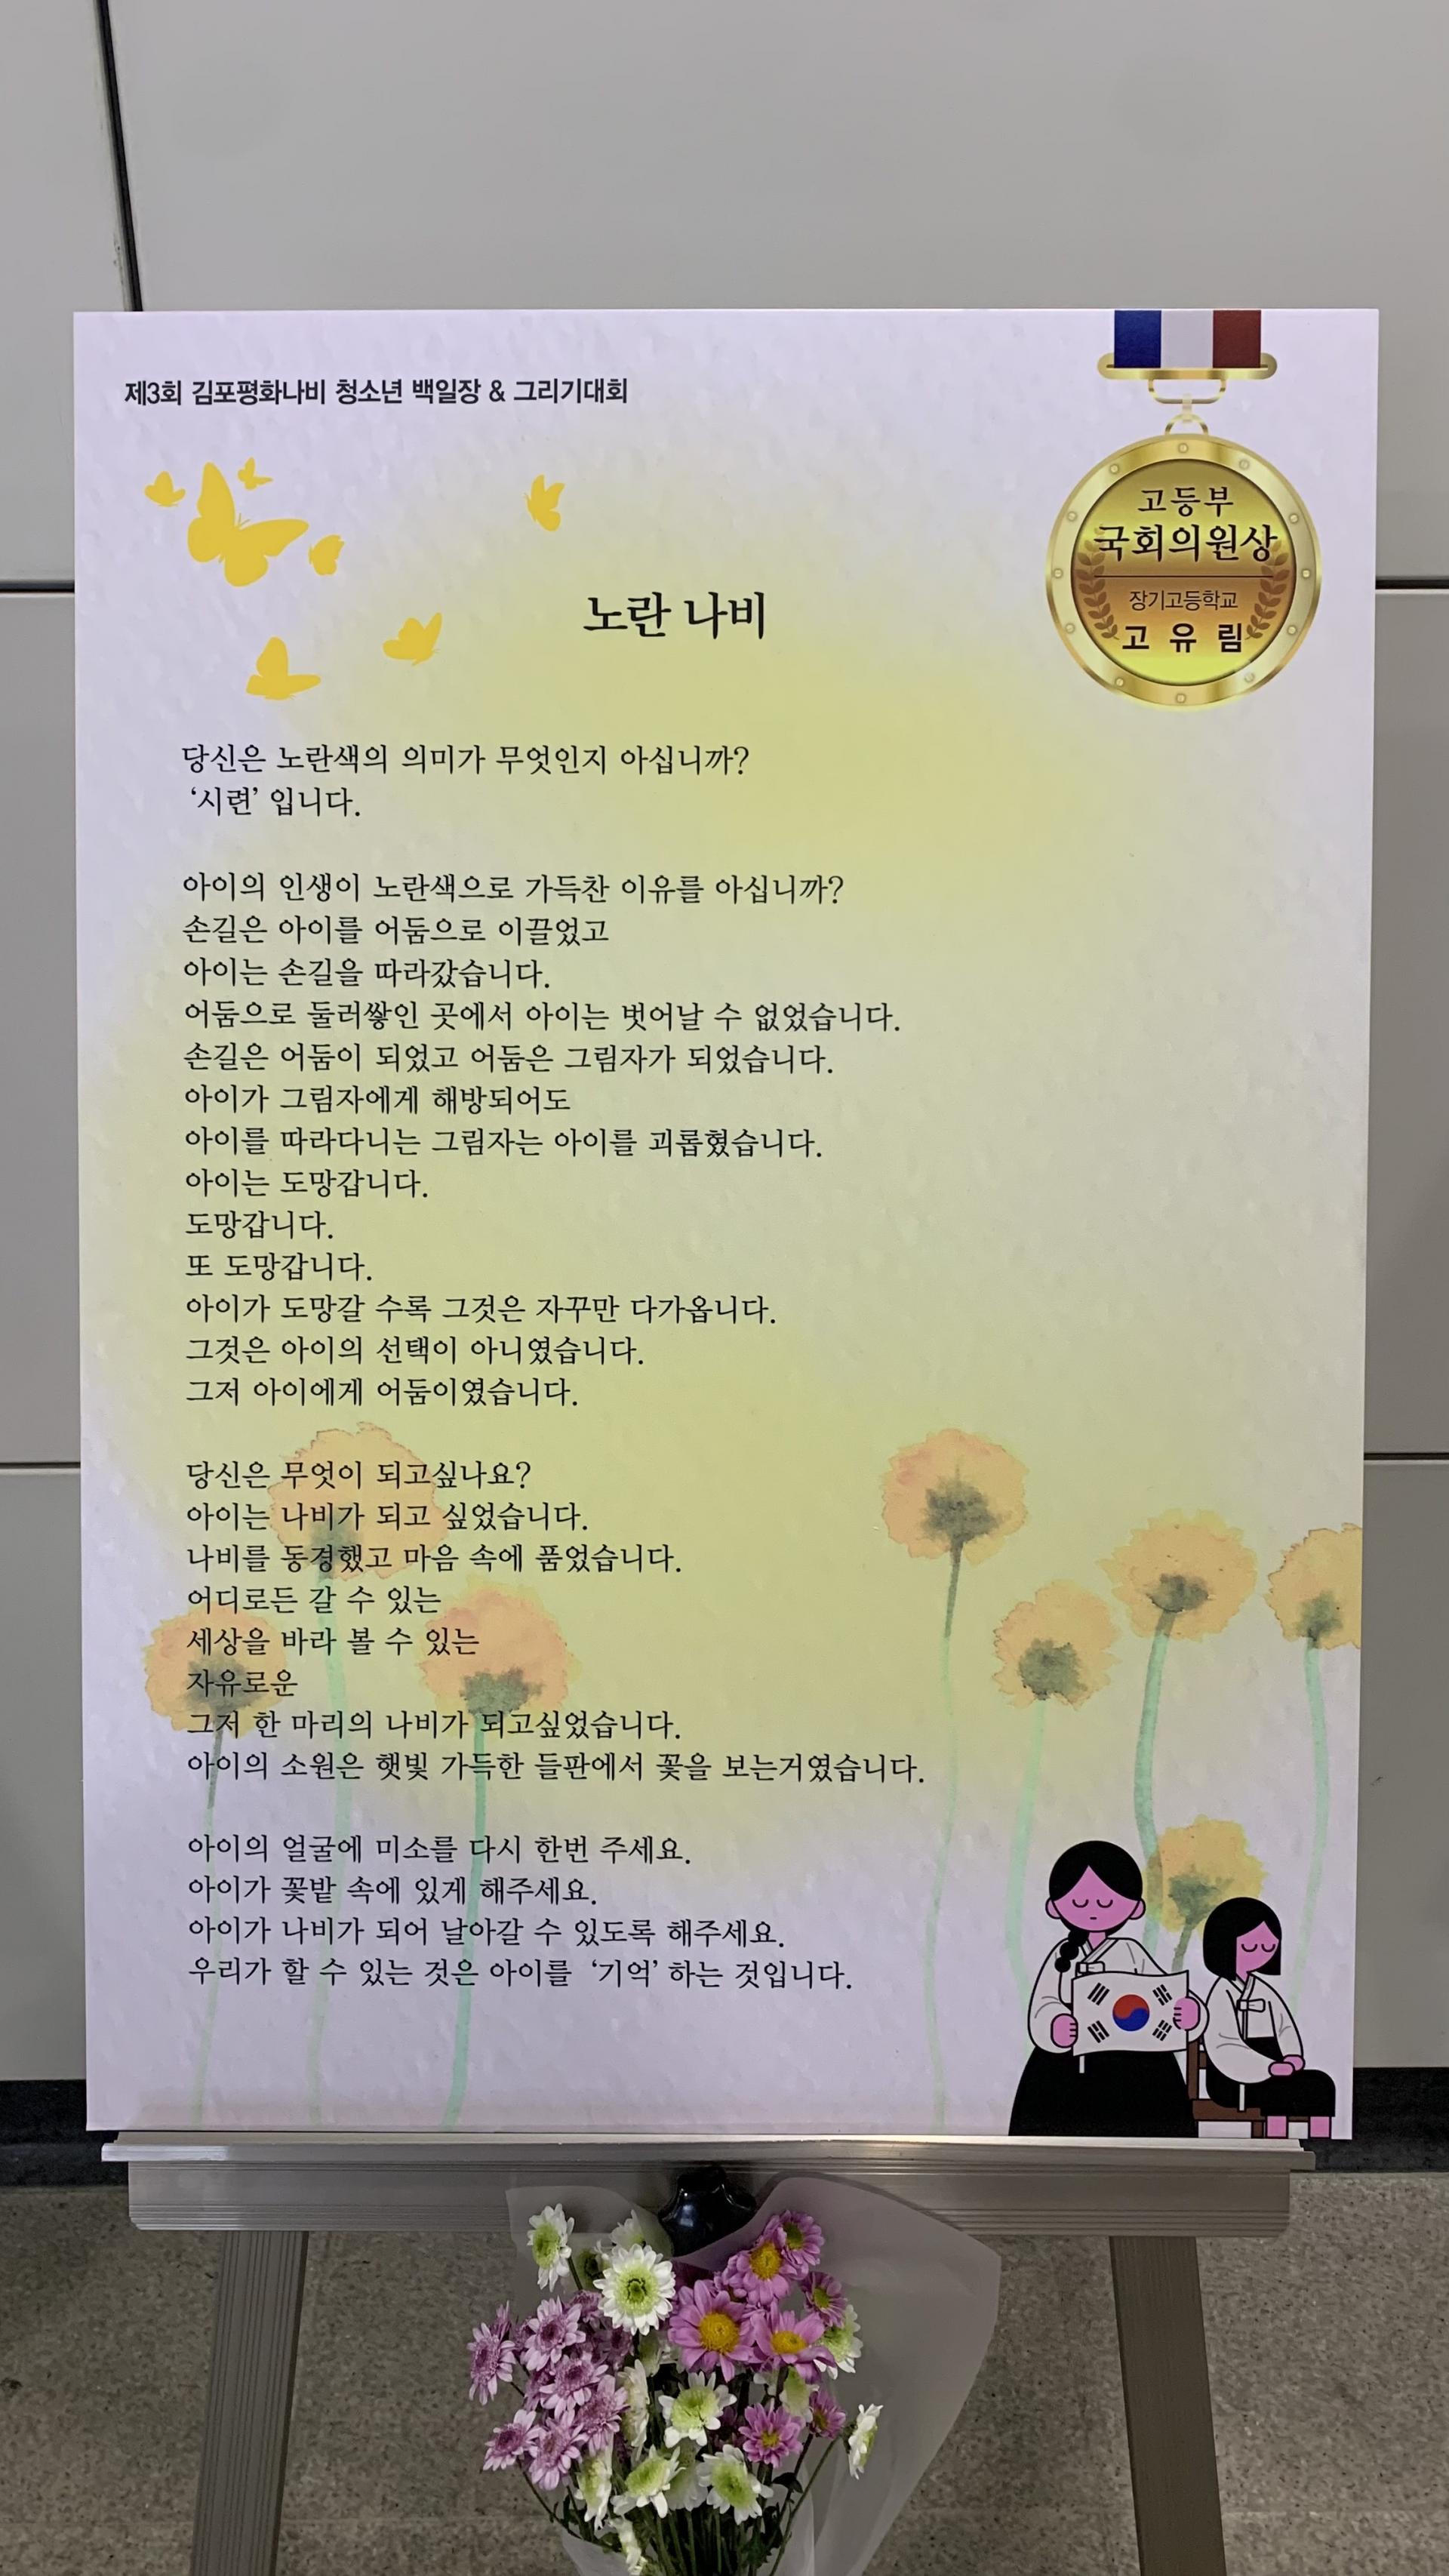 제3회 김포평화나비 청소년 백일장 & 그리기대회
고등부
국회의원상
장기고등학교
고 유 림
노란 나비
당신은 노란색의 의미가 무엇인지 아십니까?
‘시련’ 입니다.
아이의 인생이 노란색으로 가득찬 이유를 아십니까?
손길은 아이를 어둠으로 이끌었고
아이는 손길을 따라갔습니다.
어둠으로 둘러쌓인 곳에서 아이는 벗어날 수 없었습니다.
손길은 어둠이 되었고 어둠은 그림자가 되었습니다.
아이가 그림자에게 해방되어도
아이를 따라다니는 그림자는 아이를 괴롭혔습니다.
아이는 도망갑니다.
도망갑니다.
또 도망갑니다.
아이가 도망갈 수록 그것은 자꾸만 다가옵니다.
그것은 아이의 선택이 아니였습니다.
그저 아이에게 어둠이였습니다.
당신은 무엇이 되고싶나요?
아이는 나비가 되고 싶었습니다.
나비를 동경했고 마음 속에 품었습니다.
어디로든 갈 수 있는
세상을 바라 볼 수 있는
자유로운
그저 한 마리의 나비가 되고싶었습니다.
아이의 소원은 햇빛 가득한 들판에서 꽃을 보는거였습니다.
아이의 얼굴에 미소를 다시 한번 주세요.
아이가 꽃밭 속에 있게 해주세요.
아이가 나비가 되어 날아갈 수 있도록 해주세요.
우리가 할 수 있는 것은 아이를 ‘기억’ 하는 것입니다.